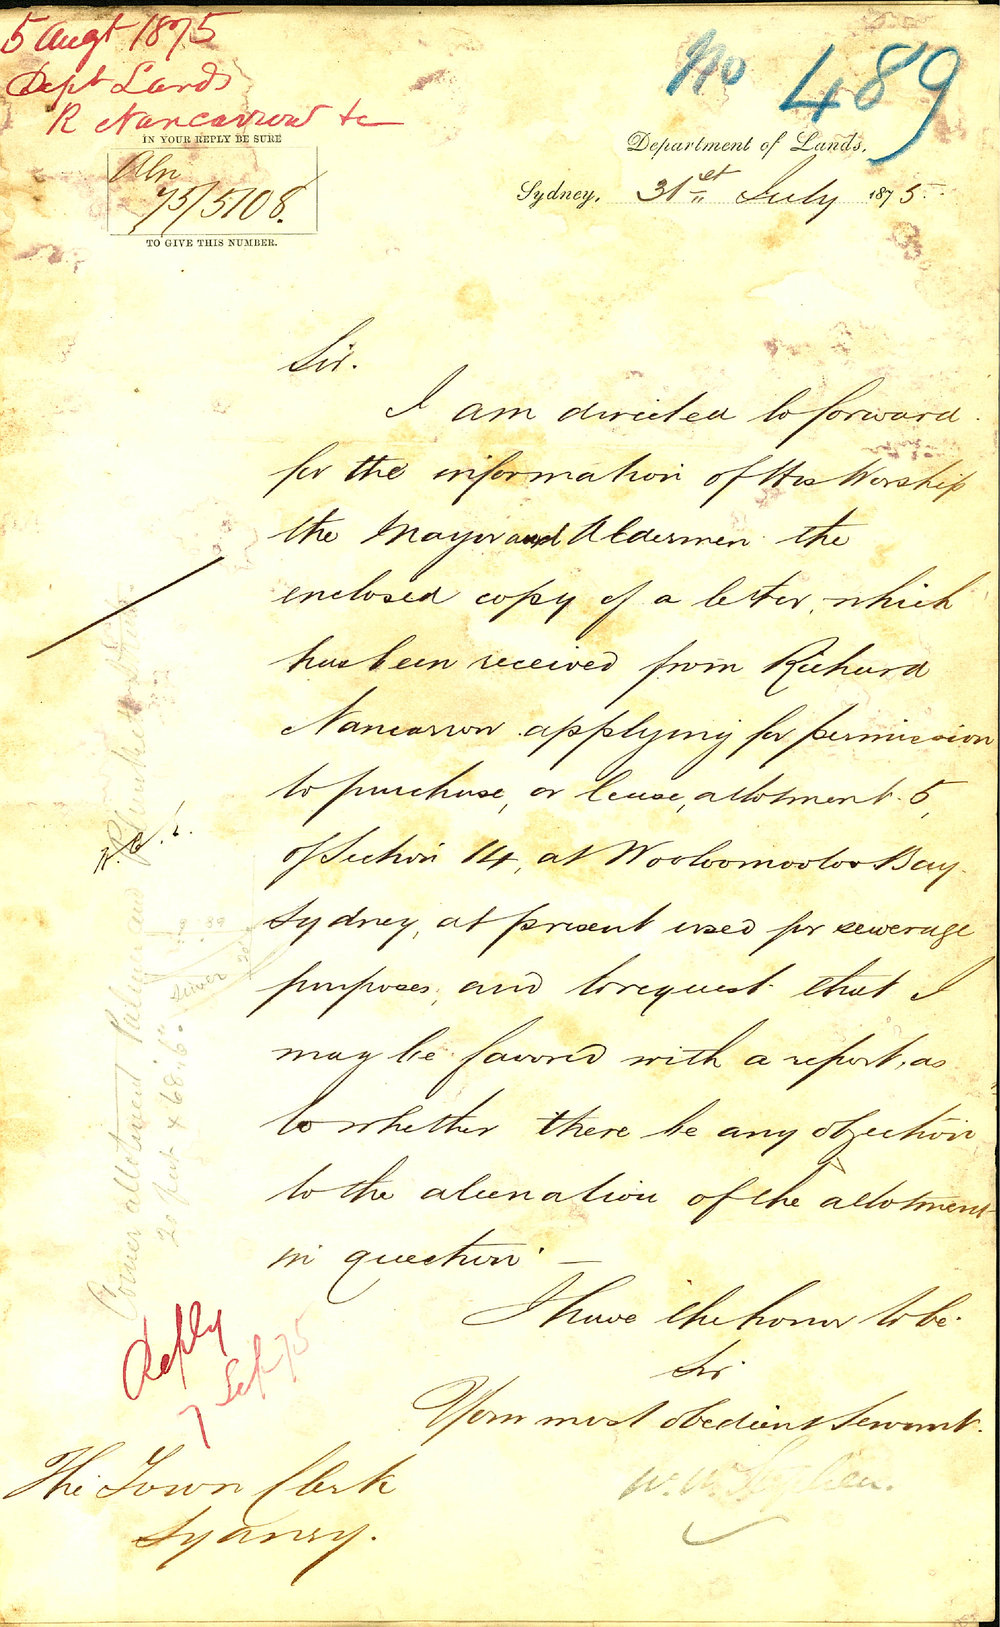 5 Augt 1875
Dept Lands
R Nancarrow &c
IN YOUR REPLY BE SURE
Aln
75/5108.
TO GIVE THIS NUMBER.
No 489
Department of Lands,
Sydney, 31st July 1875.
Sir.
I am directed to forward
for the information of His Worship
the Mayor and Aldermen the
enclosed copy of a letter, which
has been received from Richard
Nancarrow applying for permission
to purchase, or lease, allotment 5,
of Section 14, at Wooloomooloo Bay
Sydney, at present used for sewerage
purposes; and to request that I
may be favored with a report, as
to whether there be any objection
to the alienation of the allotment
in question. —
I have the honor to be
Sir
Your most obedient Servant.
W. W. Stephen.
The Town Clerk
Sydney.
Reply
7 Sep 75
Corner allotment Palmer and
20 feet x 68..6".
Sewer